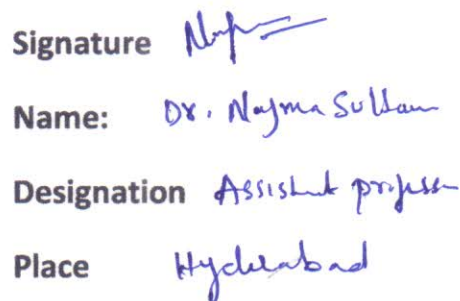 Signature
Name: Dr. Najma Sultana
Designation Assistant professor
Place Hyderabad